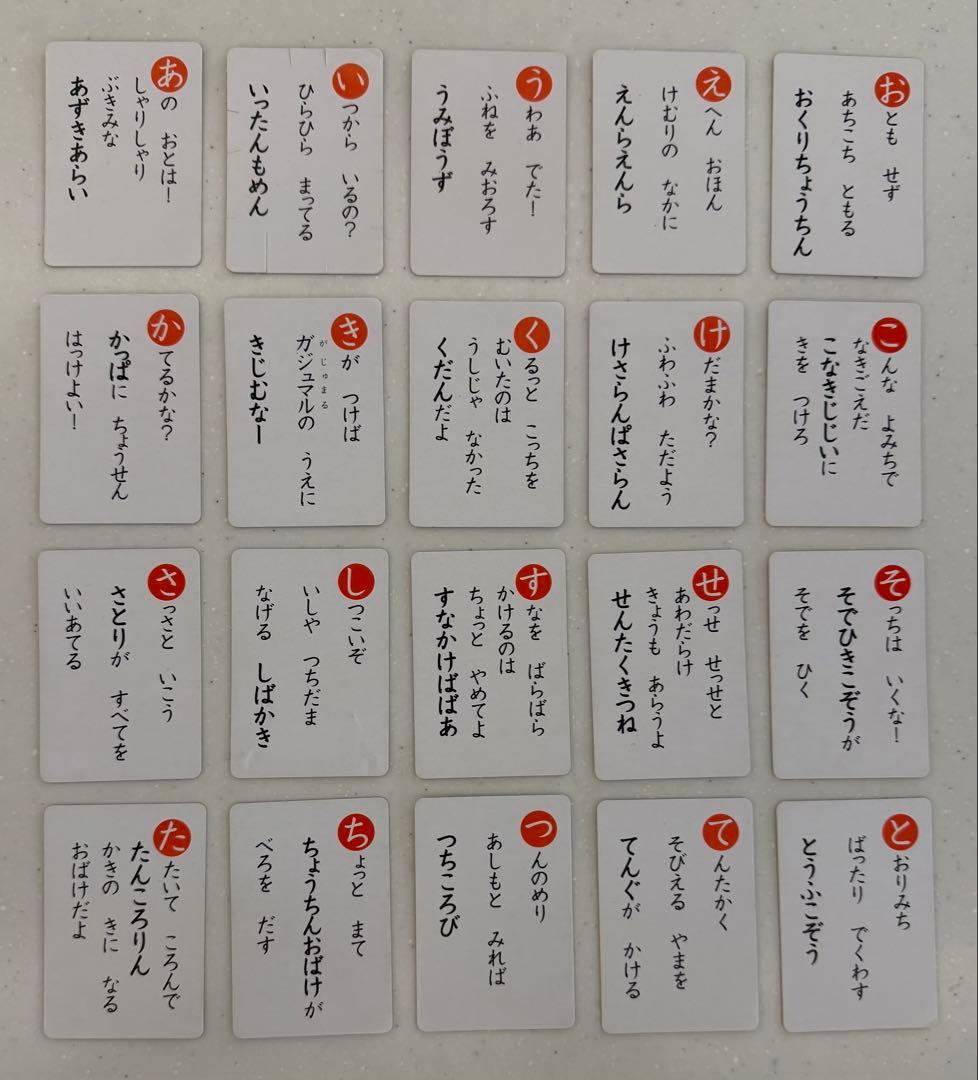 あの　おとは！
しゃりしゃり
ぶきみな
あずきあらい
いつから　いるの？
ひらひら　まってる
いったんもめん
うわあ　でた！
ふねを　みおろす
うみぼうず
えへん　おほん
けむりの　なかに
えんらえんら
おとも　せず
あちこち　ともる
おくりちょうちん
かてるかな？
かっぱに　ちょうせん
はっけよい！
きが　つけば
ガジュマルの　うえに
がじゅまる
きじむなー
くるっと　こっちを
むいたのは
うしじゃ　なかった
くだんだよ
けだまかな？
ふわふわ　ただよう
けさらんぱさらん
こんな　よみちで
なきごえだ
こなきじじいに
きを　つけろ
さっさと　いこう
さとりが　すべてを
いいあてる
しつこいぞ
いしや　つちだま
なげる　しばかき
すなを　ばらばら
かけるのは
ちょっと　やめてよ
すなかけばばあ
せっせ　せっせと
あわだらけ
きょうも　あらうよ
せんたくきつね
そっちは　いくな！
そでひきこぞうが
そでを　ひく
たたいて　ころんで
たんころりん
かきの　きに　なる
おばけだよ
ちょっと　まて
ちょうちんおばけが
べろを　だす
つんのめり
あしもと　みれば
つちころび
てんたかく
そびえる　やまを
てんぐが　かける
とおりみち
ばったり　でくわす
とうふこぞう